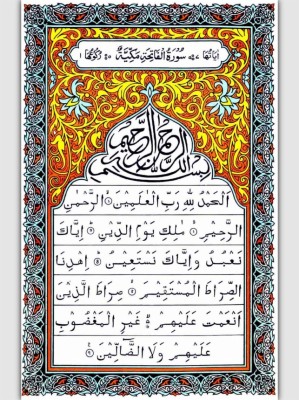 اٰیاتھا ٧ سُوْرَةُ الْفَاتِحَةِ مَكِّيَّةٌ ٥ رُكُوْعُهَا ١
بِسْمِ اللّٰهِ الرَّحْمٰنِ الرَّحِيْمِ
اَلْحَمْدُ لِلّٰهِ رَبِّ الْعٰلَمِيْنَ ۝١ الرَّحْمٰنِ
الرَّحِيْمِ ۝٢ مٰلِكِ يَوْمِ الدِّيْنِ ۝٣ اِيَّاكَ
نَعْبُدُ وَاِيَّاكَ نَسْتَعِيْنُ ۝٤ اِهْدِنَا
الصِّرَاطَ الْمُسْتَقِيْمَ ۝٥ صِرَاطَ الَّذِيْنَ
اَنْعَمْتَ عَلَيْهِمْ ۝٦ غَيْرِ الْمَغْضُوْبِ
عَلَيْهِمْ وَلَا الضَّآلِّيْنَ ۝٧